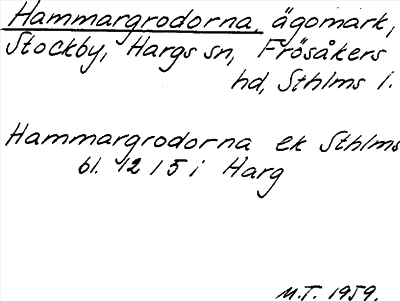 Hammargrodorna, ägomark,
Stockby, Hargs sn, Frösåkers
hd, Sthlms l.
Hammargrodorna ek Sthlms
bl. 12 15 i Harg
M.T. 1959.